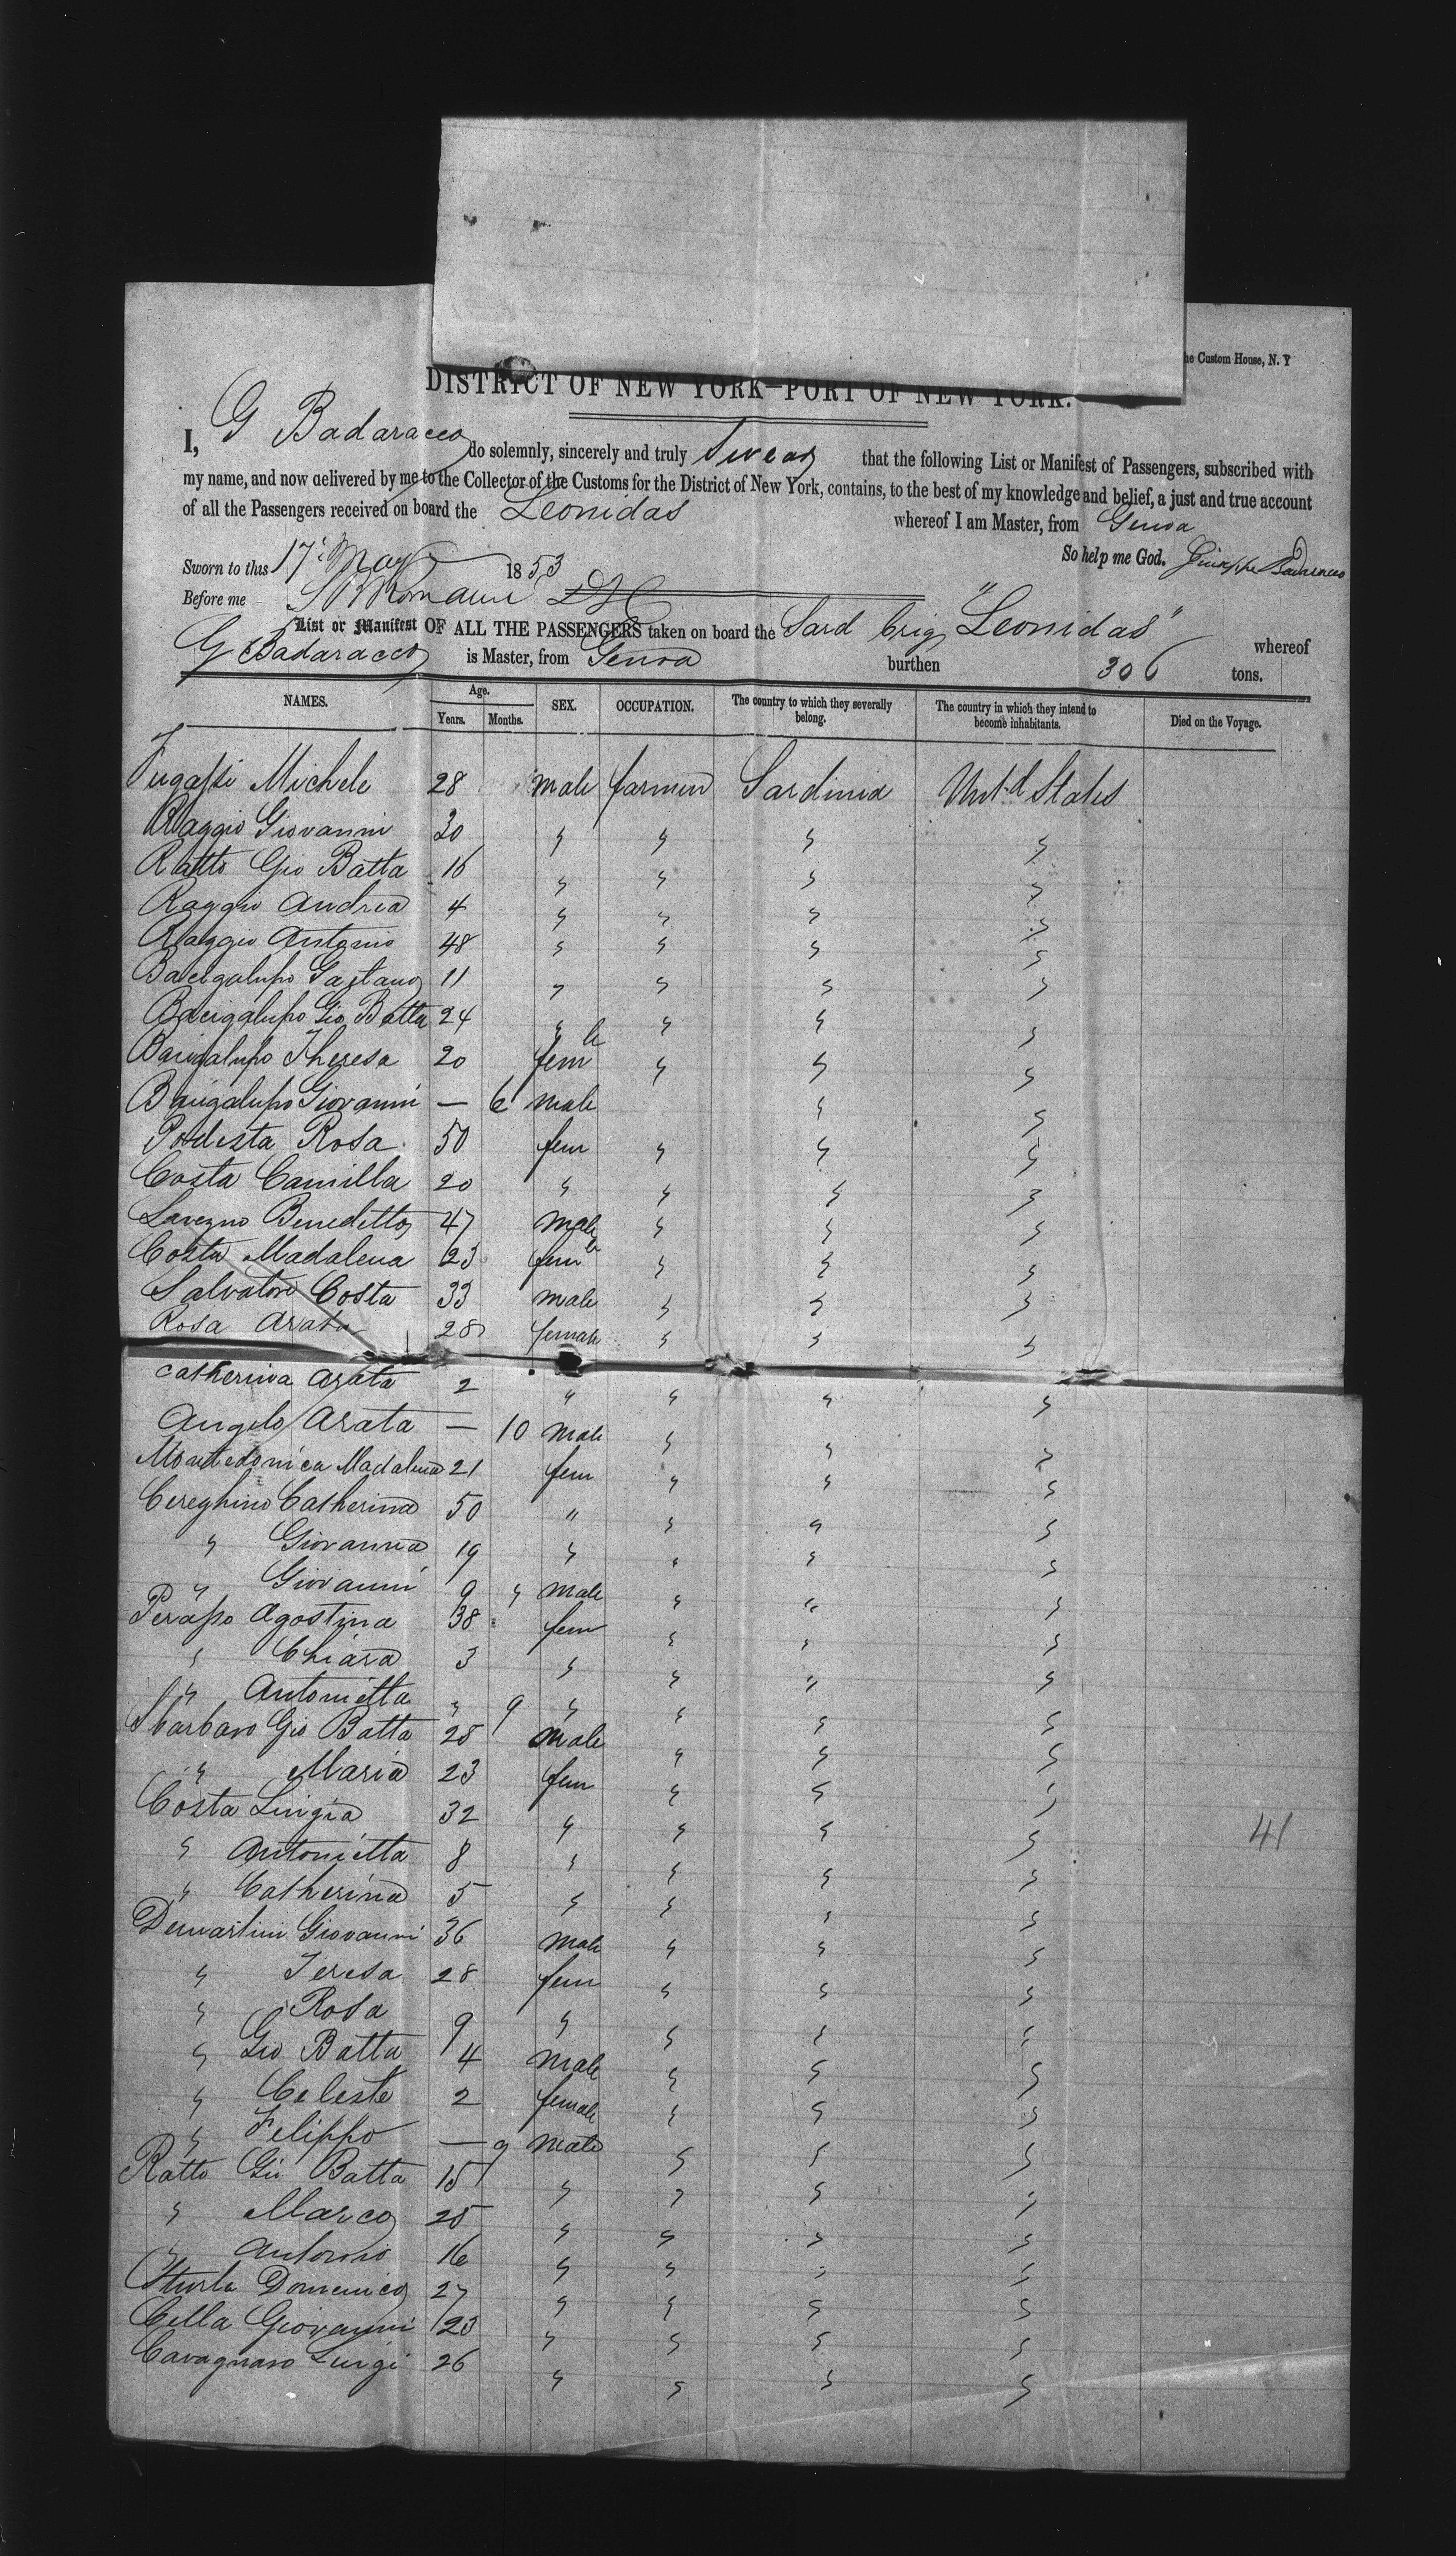 he Custom House, N. Y
DISTRICT OF NEW YORK—PORT OF NEW YORK.
I, G Badaracco do solemnly, sincerely and truly Swear that the following List or Manifest of Passengers, subscribed with
my name, and now delivered by me to the Collector of the Customs for the District of New York, contains, to the best of my knowledge and belief, a just and true account
of all the Passengers received on board the Leonidas whereof I am Master, from Genoa
So help me God. Giuseppe Badaracco
Sworn to this 17 May 1853
Before me
List or Manifest OF ALL THE PASSENGERS taken on board the Sard brig "Leonidas" whereof
G Badaracco is Master, from Genoa burthen 306 tons.
NAMES. Age. Years. Months. SEX. OCCUPATION. The country to which they severally belong. The country in which they intend to become inhabitants. Died on the Voyage.
Fugassi Michele 28 male farmer Sardinia Unit.d States
Raggio Giovanni 30 " " " "
Ratto Gio Batta 16 " " " "
Raggio Andrea 4 " " " "
Raggio Antonio 48 " " " "
Bacigalupo Gaetano 11 " " " "
Bacigalupo Gio Batta 24 " " " "
Bacigalupo Theresa 20 femle " " "
Bacigalupo Giovanni — 6 male " "
Podesta Rosa 50 fem " " "
Costa Camilla 20 " " " "
Benedetto 47 male " " "
Costa Madalena 23 femle " " "
Salvatore Costa 33 male " " "
Rosa Arata 28 female " " "
Catherina Arata 2 " " " "
Angelo Arata — 10 male " " "
Montedonica Madalena 21 fem " " "
Cereghino Catherina 50 " " " "
" Giovanna 19 " " " "
" Giovanni 9 " male " " "
Perasso Agostina 38 fem " " "
" Chiara 3 " " " "
" Antonietta " 9 " " " "
Sbarbaro Gio Batta 28 male " " "
" Maria 23 fem " " "
Costa Luigia 32 " " " " 41
" Antonietta 8 " " " "
" Catherina 5 " " " "
Demartini Giovanni 36 male " " "
" Teresa 28 fem " " "
" Rosa 9 " " " "
" Gio Batta 4 male " " "
" Celeste 2 female " " "
" Filippo — 9 male " " "
Ratto Gio Batta 15 " " " "
" Marco 25 " " " "
" Antonio 16 " " " "
Sturla Domenico 27 " " " "
Cella Giovanni 23 " " " "
Cavagnaro Luigi 26 " " " "